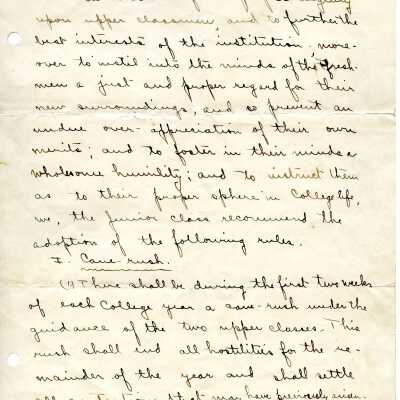 upon upper classmen, and to further the
best interests of the institution; more-
over to instil into the minds of the fresh-
men a just and proper regard for their
new surroundings, and so prevent an
undue over-appreciation of their own
merits; and to foster in their minds a
wholesome humility; and to instruct them
as to their proper sphere in College life,
we, the junior class recommend the
adoption of the following rules.
I. Cane-rush.
(1) There shall be during the first two weeks
of each College year a cane-rush under the
guidance of the two upper classes. This
rush shall end all hostilities for the re-
mainder of the year and shall settle
all that may have previously